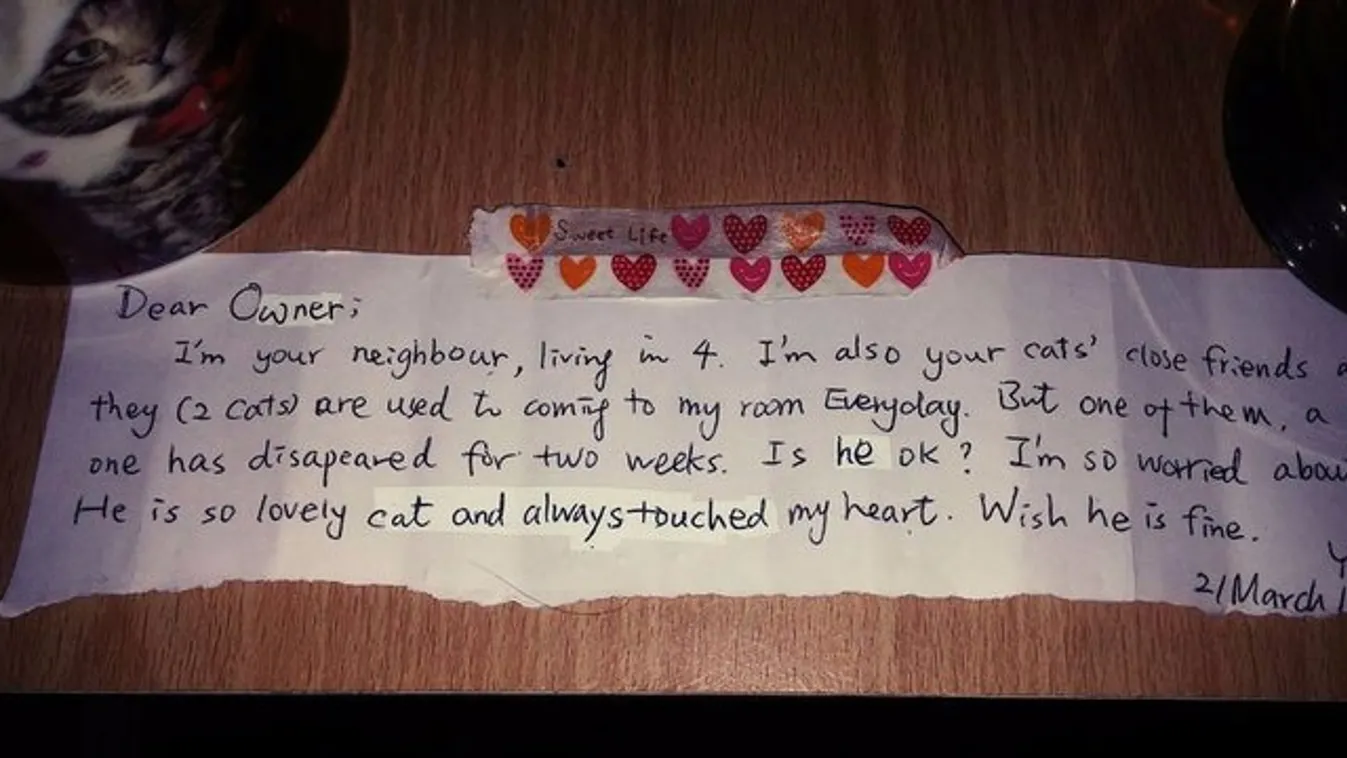 Sweet Life
Dear Owner;
I'm your neighbour, living in 4. I'm also your cats' close friends
they (2 cats) are used to coming to my room Everyday. But one of them, a
one has disapeared for two weeks. Is he ok? I'm so worried abou
He is so lovely cat and always touched my heart. Wish he is fine.
Y
21/March